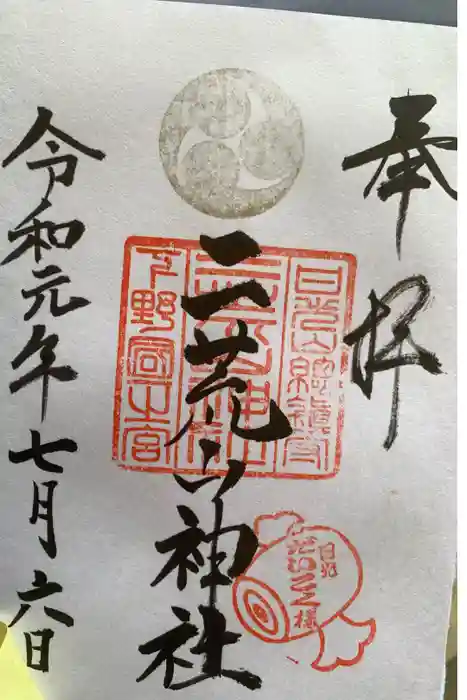 奉拝
二荒山神社
令和元年七月六日
日光山総鎮守
二荒山神社
下野國一之宮
日光
だいこく様